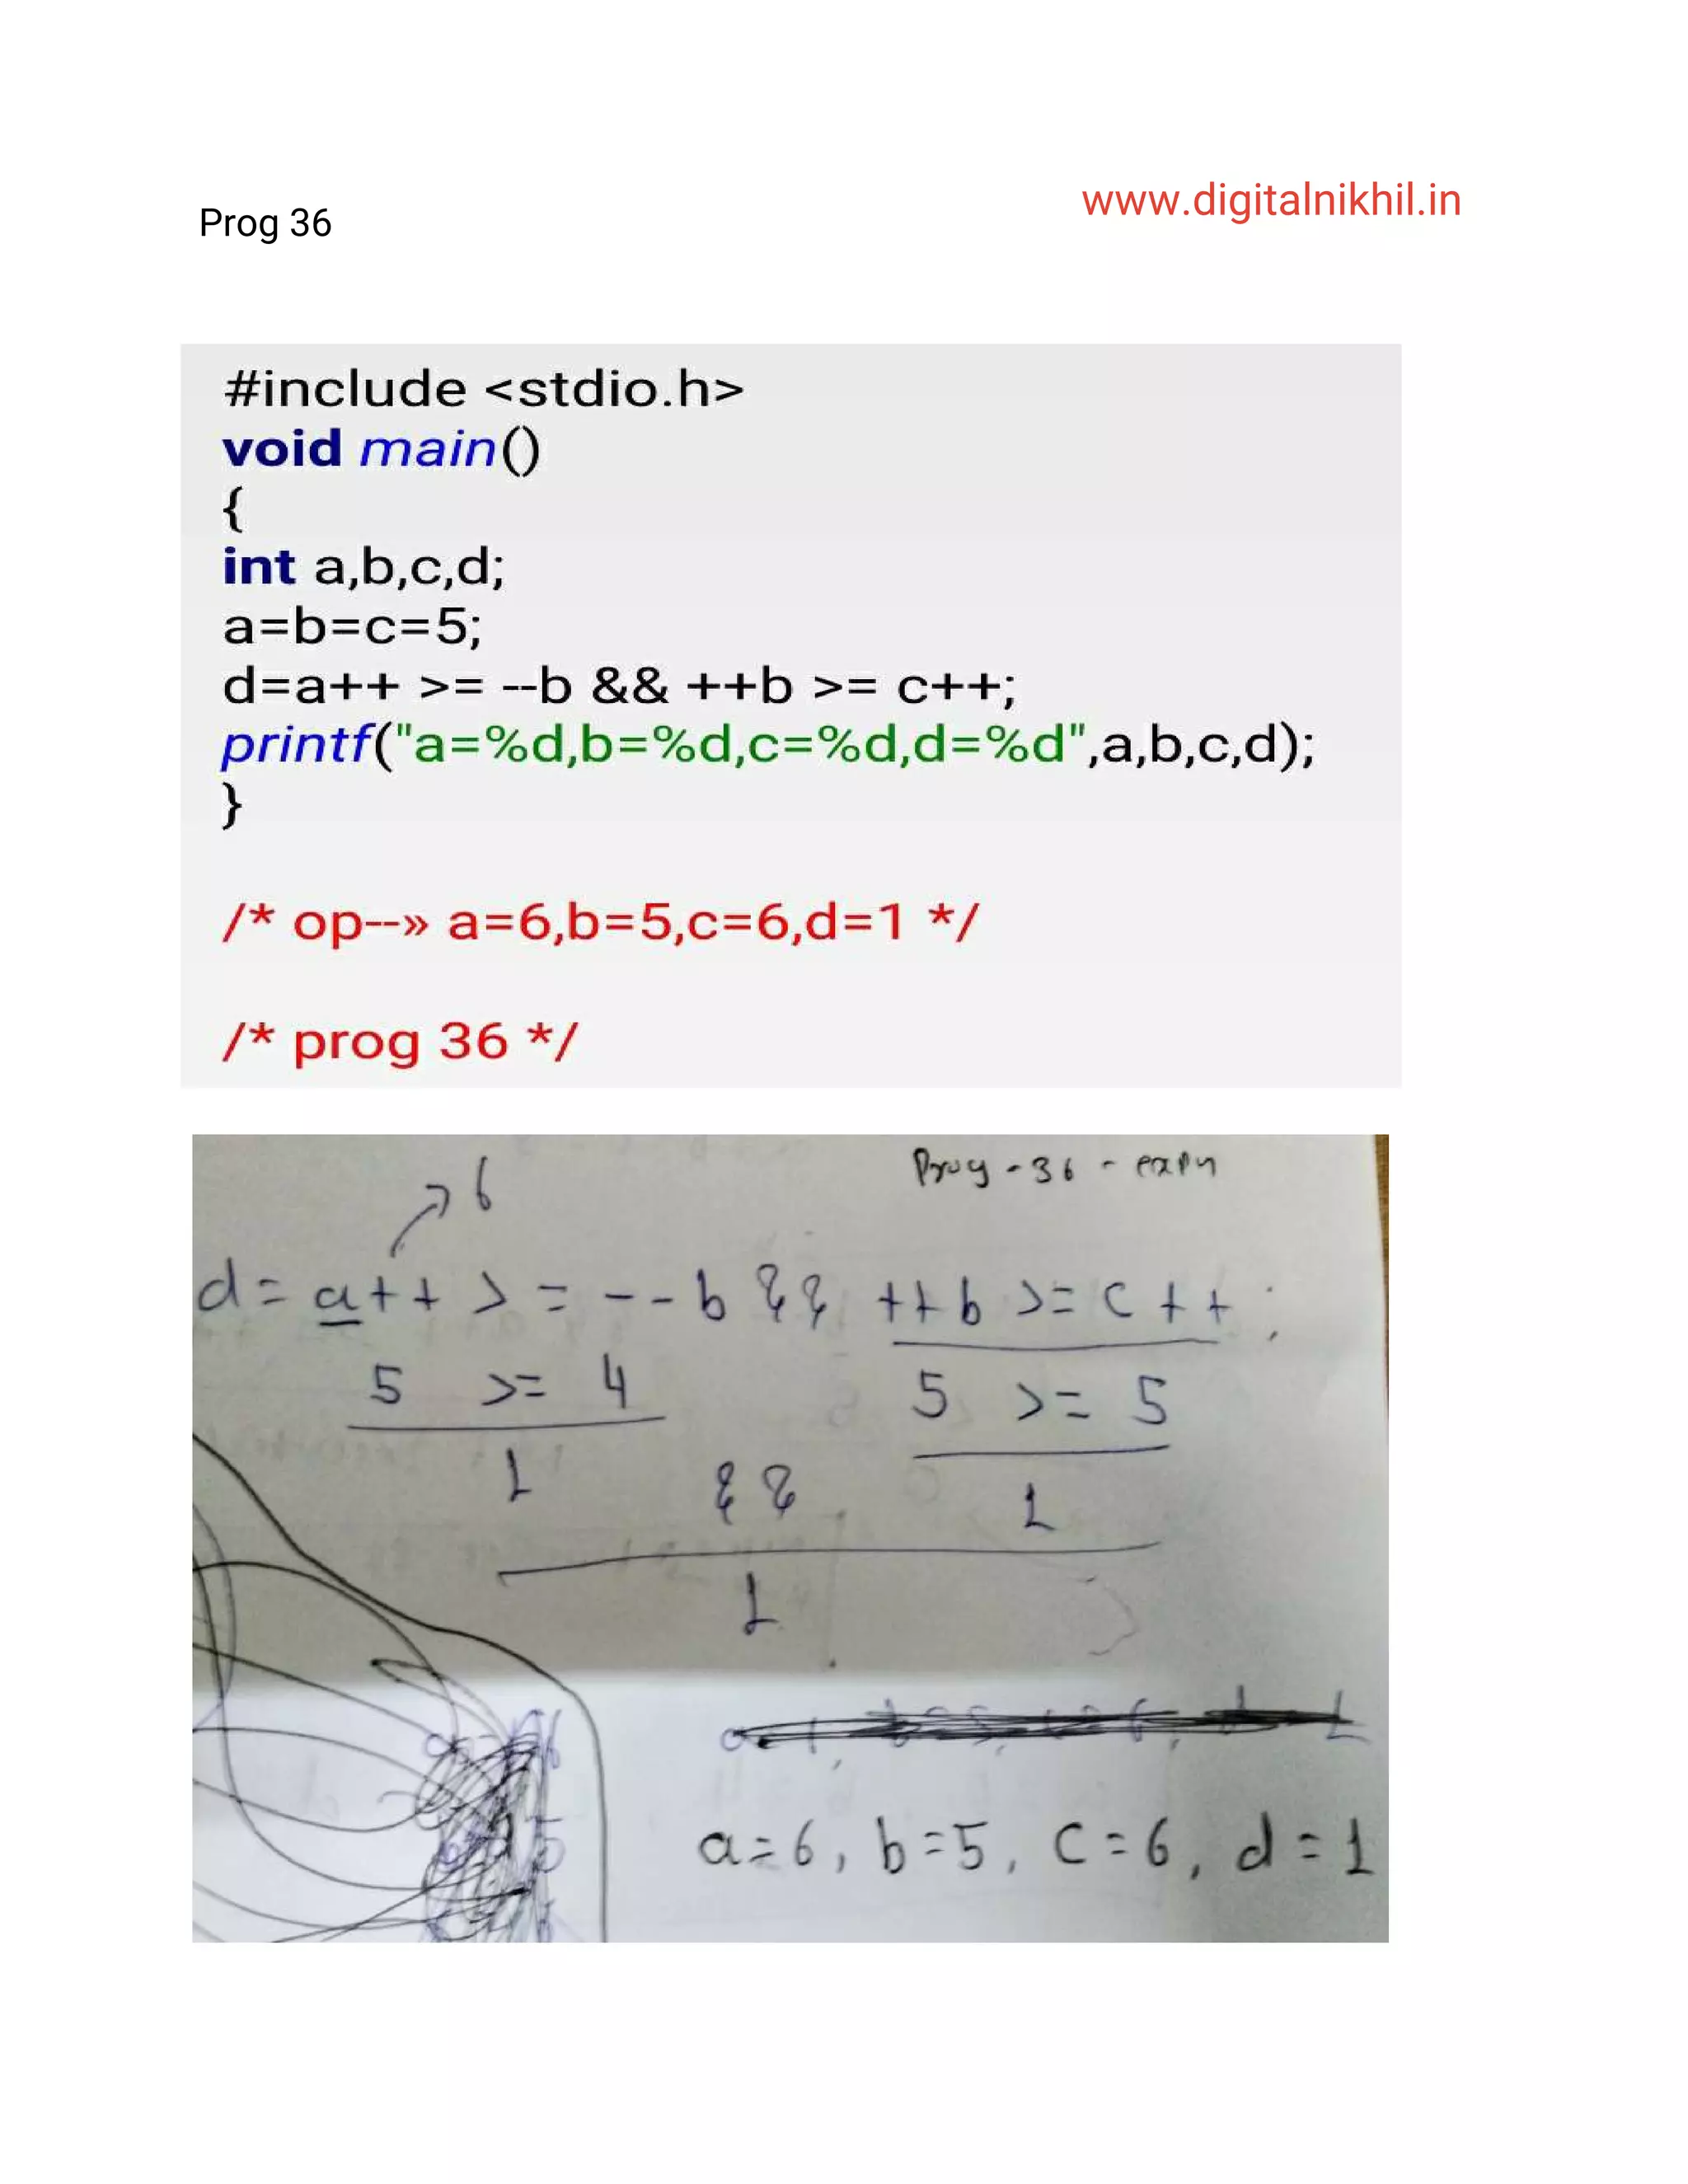 www.digitalnikhil.in
Prog 36
#include <stdio.h>
void main()
{
int a,b,c,d;
a=b=c=5;
d=a++ >= --b && ++b >= c++;
printf("a=%d,b=%d,c=%d,d=%d",a,b,c,d);
}
/* op--» a=6,b=5,c=6,d=1 */
/* prog 36 */
Prog - 36 - expn
6
d = a++ >= --b && ++b >= c++ ;
5 >= 4 5 >= 5
1 && 1
1
a=6, b=5, c=6, d=1